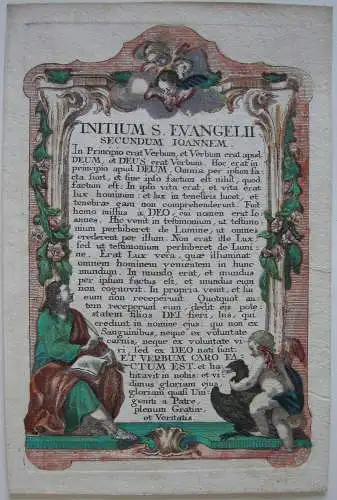 INITIUM S. EVANGELII
SECUNDUM IOANNEM.
In Principio erat Verbum, et Verbum erat apud
DEUM, et DEUS erat Verbum. Hoc erat in
principio apud DEUM, Omnia per ipsum fa
cta sunt, et sine ipso factum est nihil, quod
factum est: In ipso vita erat, et vita erat
lux hominum: et lux in tenebris lucet, et
tenebræ eam non comprehenderunt. Fuit
homo missus à DEO, cui nomen erat Io
annes. Hic venit in testimonium, ut testimo
nium perhiberet de Lumine, ut omnes
crederent per illum. Non erat ille Lux:
sed ut testimonium perhiberet de Lumi
ne. Erat Lux vera, quæ illuminat
omnem hominem venientem in hunc
mundum. In mundo erat, et mundus
per ipsum factus est, et mundus eum
non cognovit. In propria venit, et sui
eum non receperunt. Quotquot au
tem receperunt eum, dedit eis pote:
statem filios DEI fieri, his, qui
credunt in nomine ejus, qui non ex
Sanguinibus, neque ex voluntate
carnis, neque ex voluntate vi
ri, sed ex DEO nati sunt.
ET VERBUM CARO FA:
CTUM EST, et ha
bitavit in nobis: et vi
dimus gloriam ejus,
gloriam quasi Uni
geniti a Patre,
plenum Gratiæ,
et Veritatis.